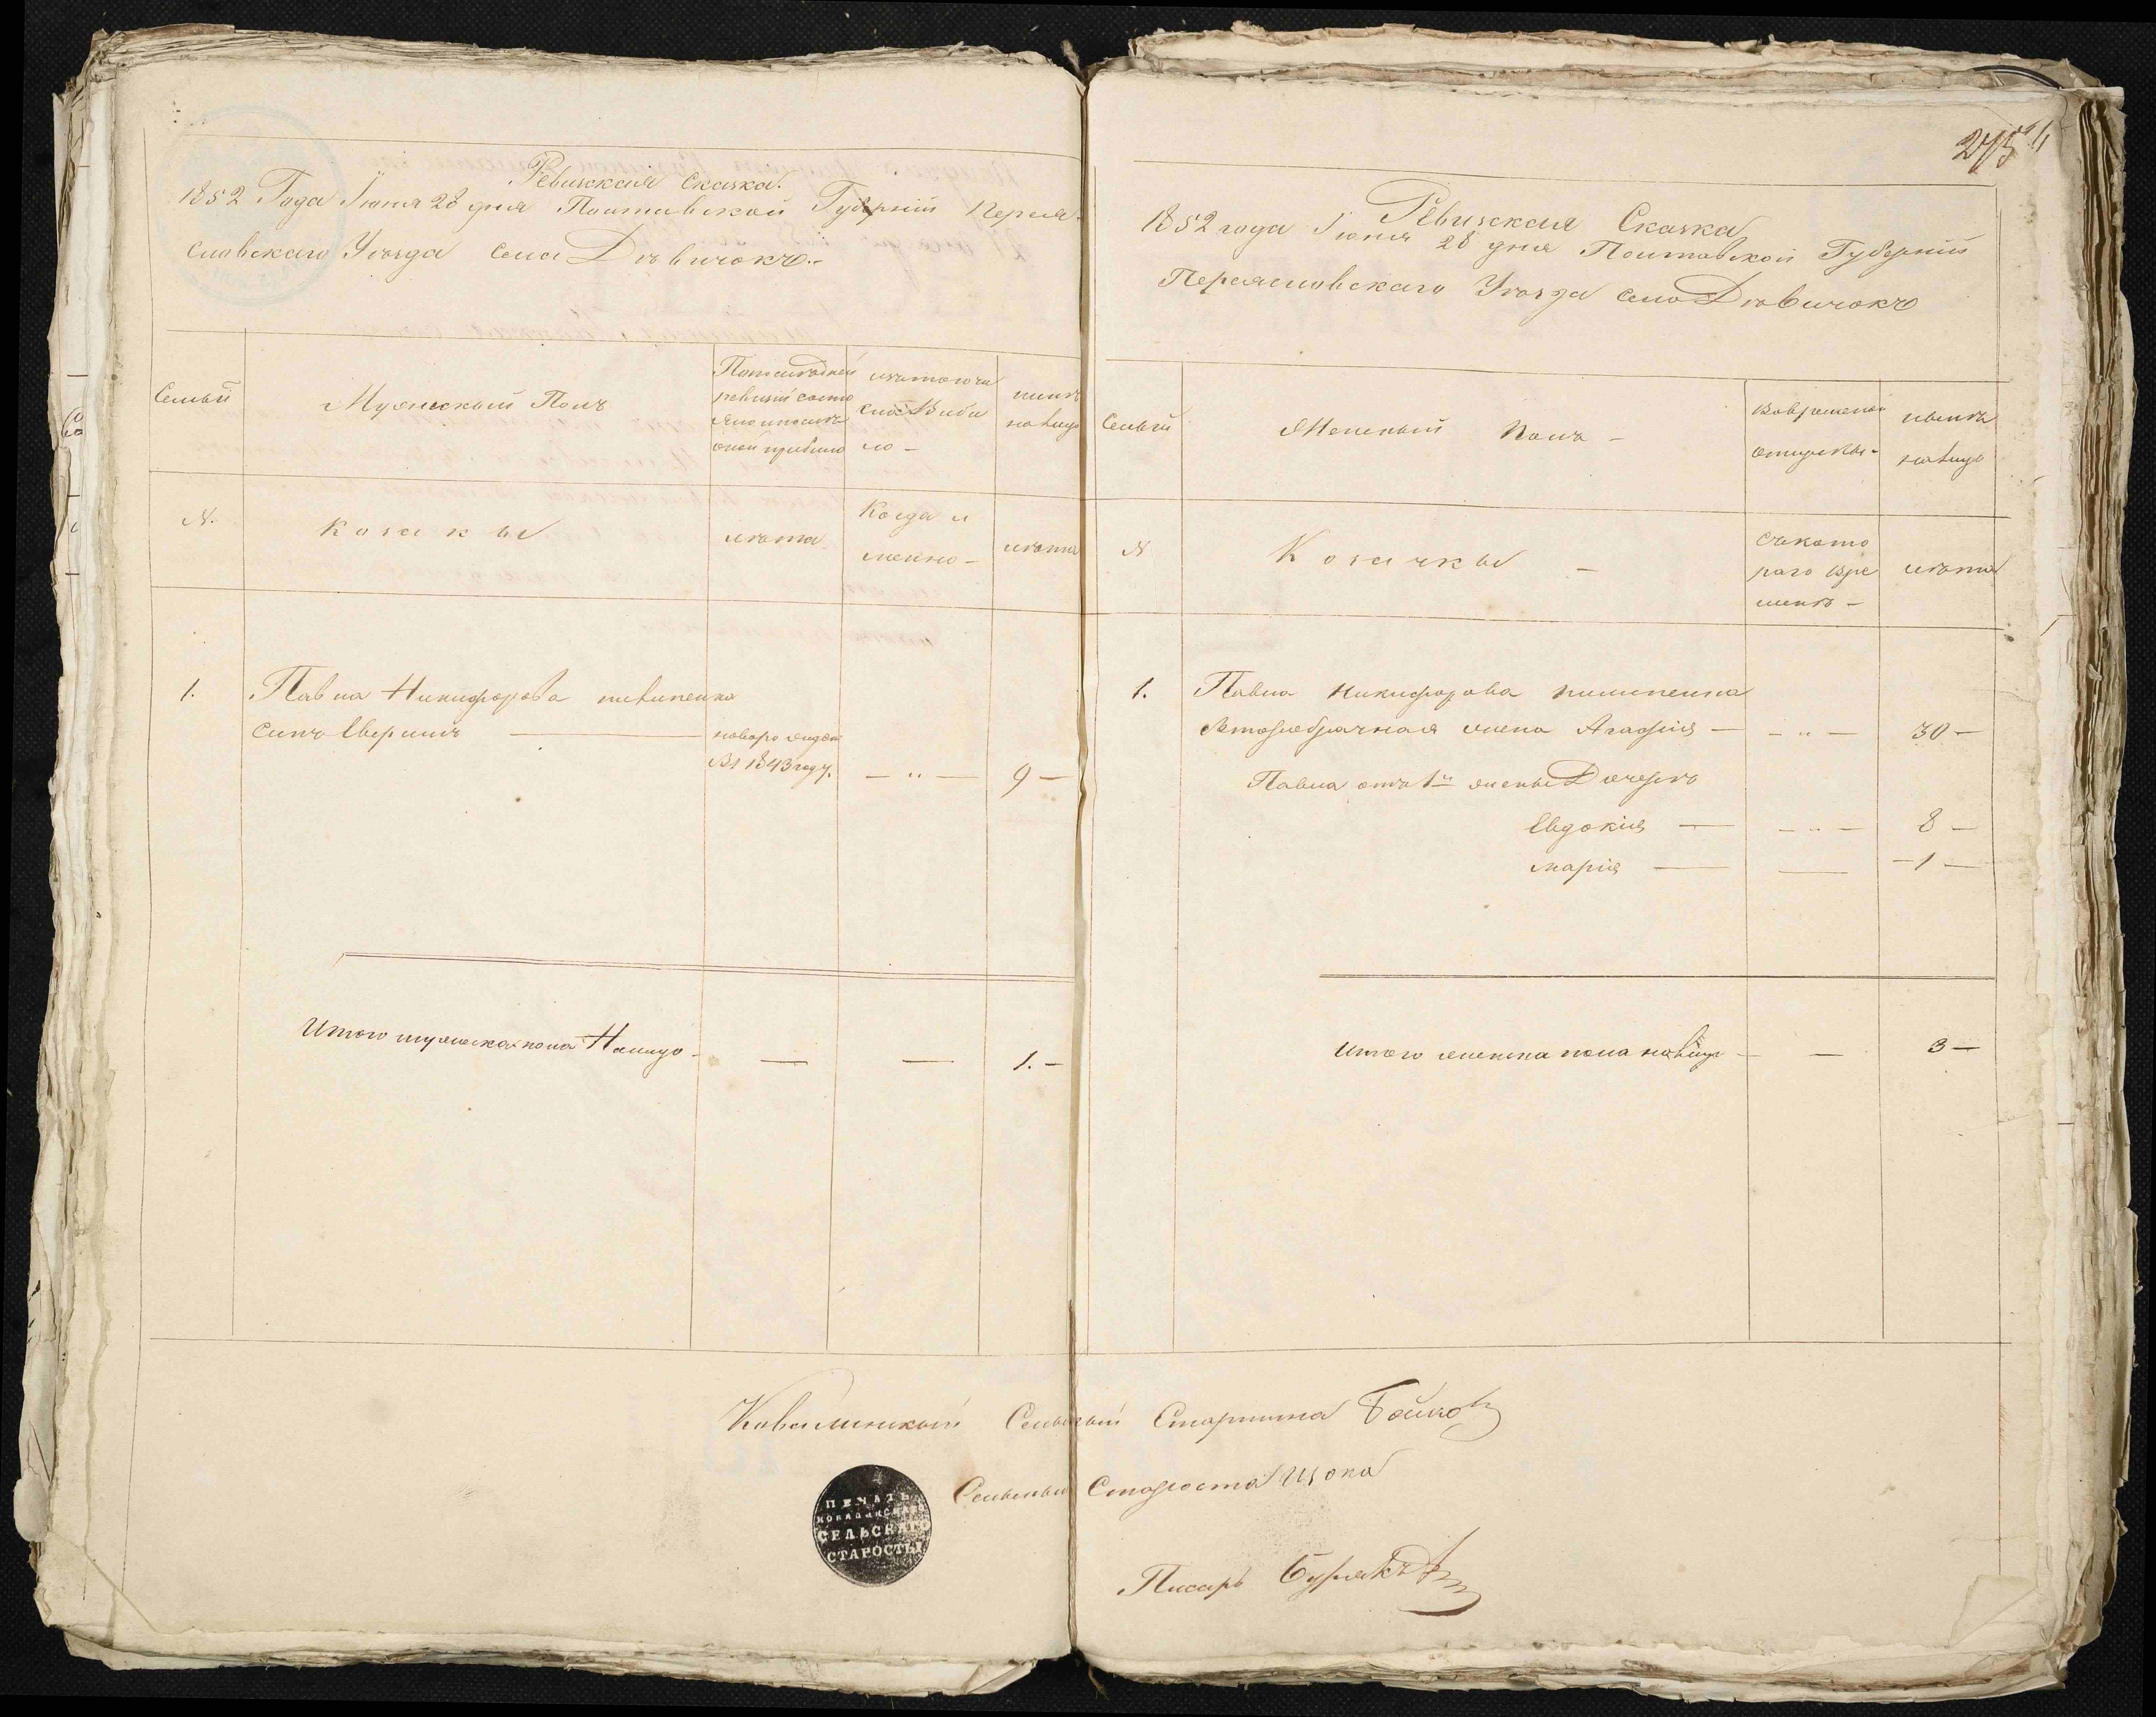 Ревизская Сказка.
1852 Года Іюня 28 дня Полтавской Губерніи Перея-
славскаго Уѣзда села Дѣвичокъ.-
Семьи
Мужескый Полъ
Последней
ревизіи состо
яло и послѣ
оной прибыло
изътого чи
сла Выбы
ло -
нынѣ
налицо
N.
Козакы
лѣта
Когда и
менно -
лѣта
1.
Павла Никифорова пилипенка
Сынъ Аверкій
новорожден
Въ 1843 году.
— „ —
9 —
Итого мужеска пола Налицо -
—
—
1. -
275
Ревизская Сказка
1852 года Іюня 28 дня Полтавской Губерніи
Переяславскаго Уѣзда села Дѣвичокъ
Семьи
Женскый Полъ -
Вовременой
отлучкы -
нынѣ
налицо
N
Козачкы -
Съкото
раго вре
мени -
лѣта
1.
Павла Никифорова пилипенка
второбрачная жена Агафія —
— „ —
30 —
Павла отъ 1й жены Дочеры
Евдокія —
— „ —
8 —
марія —
—
— 1 —
Итого женска пола налицо -
—
3 —
Ковалинскый Сельскый Старшина Бойко
Сельскый Староста
Писарь Бурякъ
ПЕЧАТЬ
КОВАЛИНСКАГО
СЕЛЬСКАГО
СТАРОСТЫ